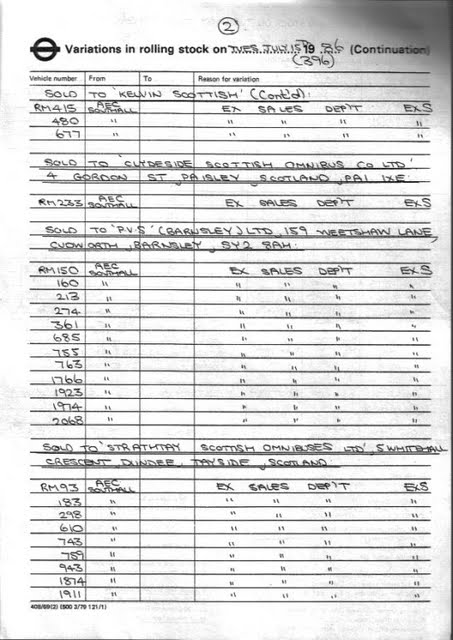 2
Variations in rolling stock on TUES. JULY 15TH 19 86 (Continuation)
(396)
Vehicle number From To Reason for variation
SOLD TO 'KELVIN SCOTTISH' (Cont'd):
RM415 AEC SOUTHALL EX SALES DEP'T EXS
480 " " " " "
677 " " " " "
SOLD TO 'CLYDESIDE SCOTTISH OMNIBUS CO LTD'
4 GORDON ST, PAISLEY, SCOTLAND, PA1 1XE:
RM233 AEC SOUTHALL EX SALES DEP'T EXS
SOLD TO 'P.V.S' (BARNSLEY) LTD, 159 WEETSHAW LANE,
CUDWORTH, BARNSLEY, SY2 8AH:
RM150 AEC SOUTHALL EX SALES DEP'T EXS
160 " " " " "
213 " " " " "
274 " " " " "
361 " " " " "
685 " " " " "
755 " " " " "
763 " " " " "
1766 " " " " "
1923 " " " " "
1974 " " " " "
2068 " " " " "
SOLD TO 'STRATHTAY SCOTTISH OMNIBUSES LTD', 5 WHITEHALL
CRESCENT DUNDEE, TAYSIDE, SCOTLAND
RM93 AEC SOUTHALL EX SALES DEP'T EXS
183 " " " " "
298 " " " " "
610 " " " " "
743 " " " " "
759 " " " " "
943 " " " " "
1874 " " " " "
1911 " " " " "
408/89(2) (500 3/79 121/1)